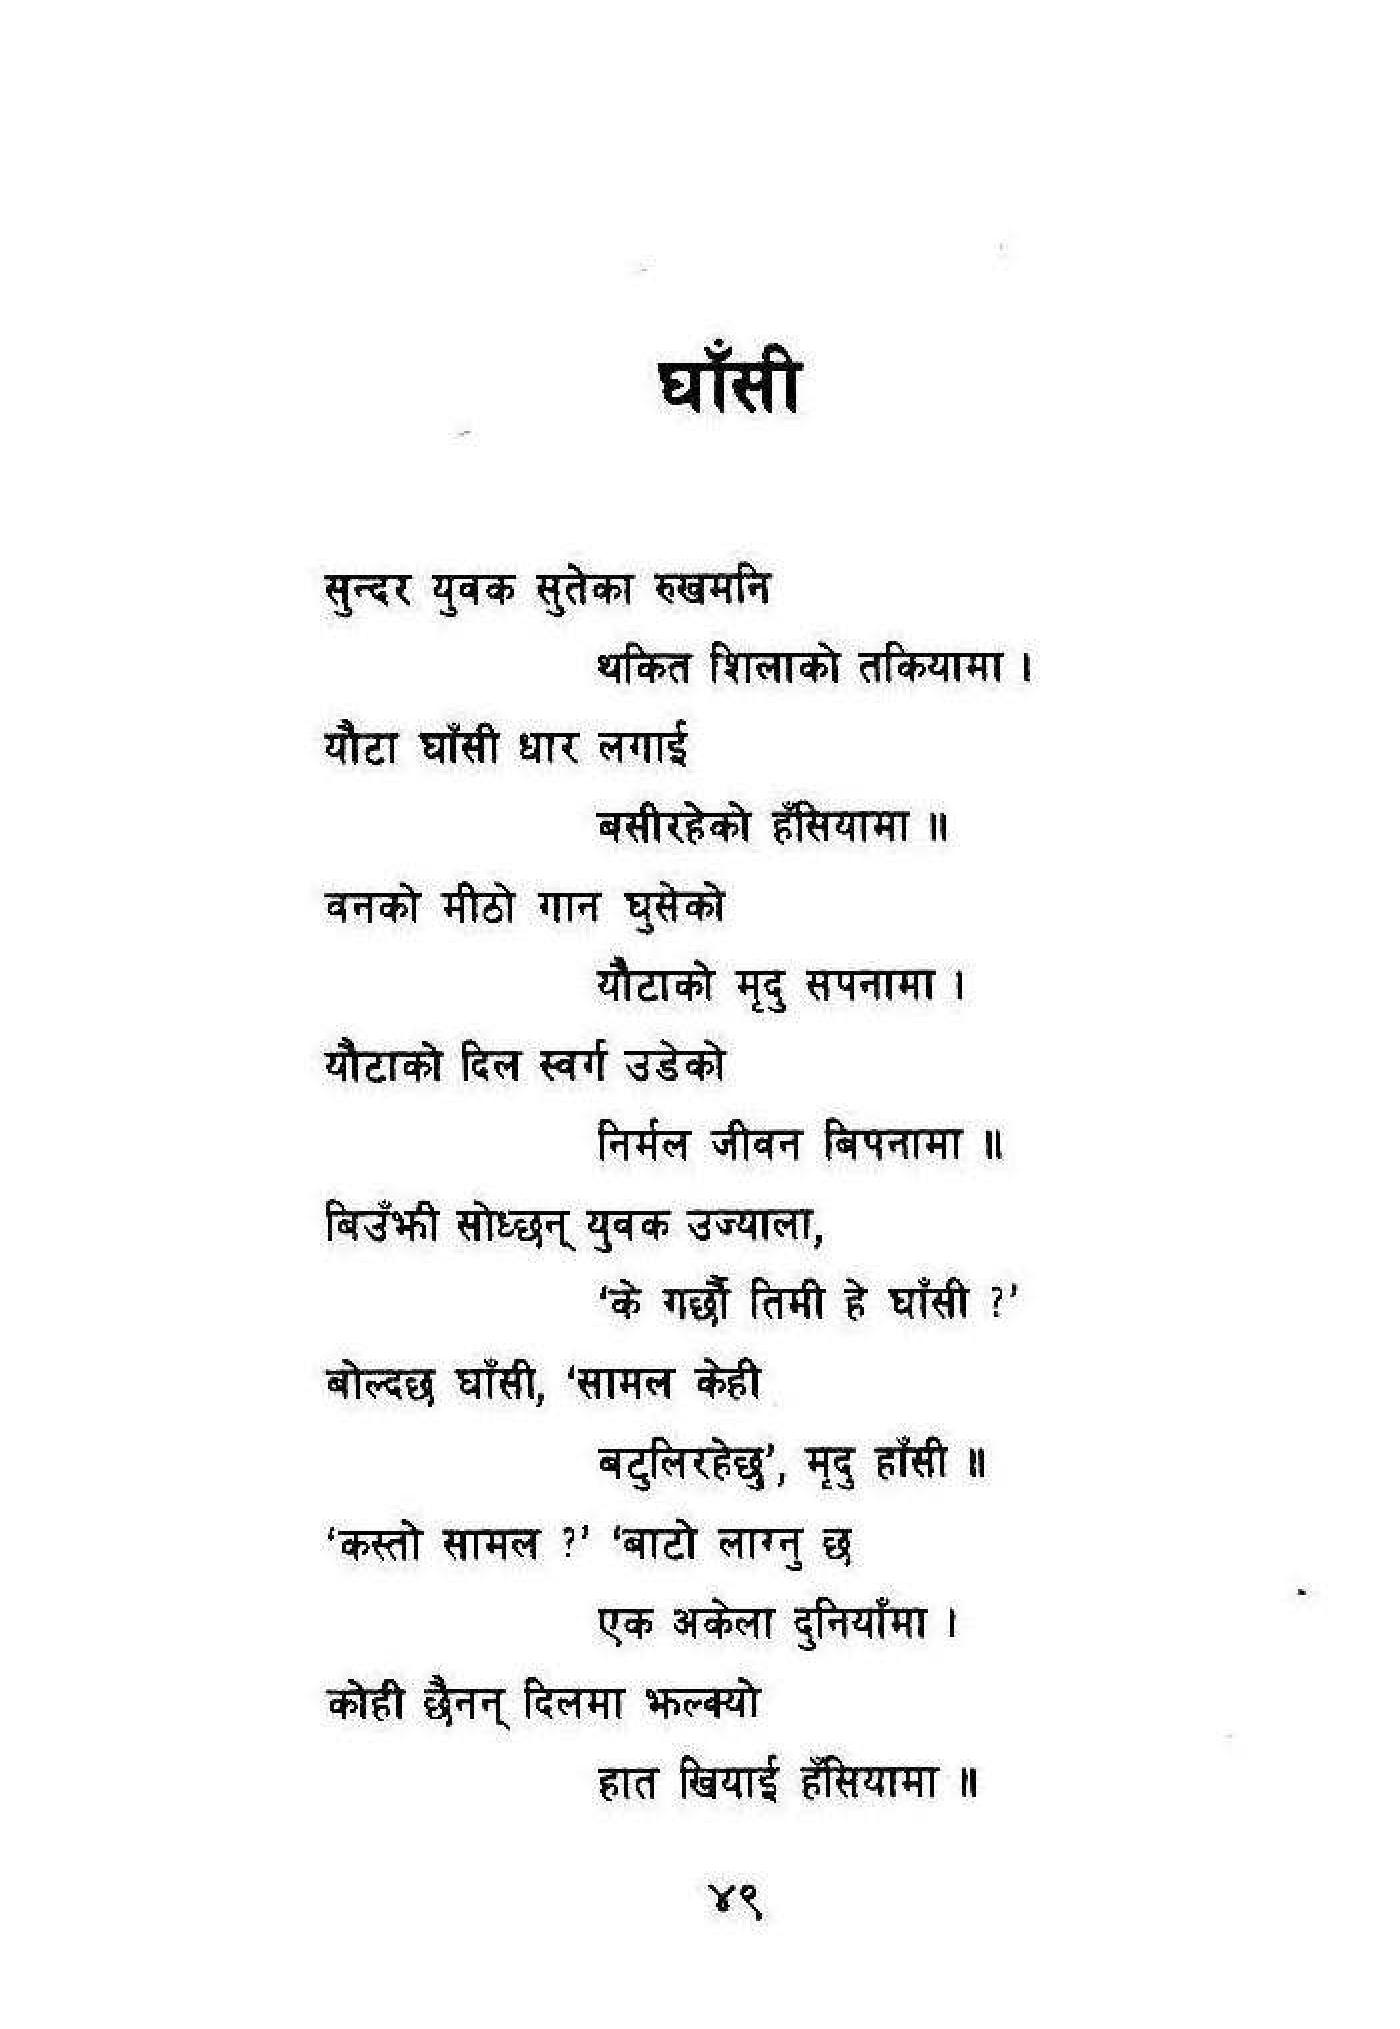 घाँसी
सुन्दर युवक सुतेका रुखमनि
थकित शिलाको तकियामा ।
यौटा घाँसी धार लगाई
बसीरहेको हँसियामा ॥
वनको मीठो गान घुसेको
यौटाको मृदु सपनामा ।
यौटाको दिल स्वर्ग उडेको
निर्मल जीवन बिपनामा ॥
बिउँझी सोध्छन् युवक उज्याला,
‘के गर्छौ तिमी हे घाँसी ?’
बोल्दछ घाँसी, ‘सामल केही
बटुलिरहेछु’, मृदु हाँसी ॥
‘कस्तो सामल ?’ ‘बाटो लाग्नु छ
एक अकेला दुनियाँमा ।
कोही छैनन् दिलमा झल्क्यो
हात खियाई हँसियामा ॥
४९